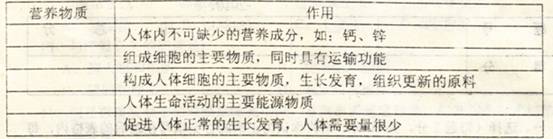 营养物质 作用
人体内不可缺少的营养成分，如：钙、锌
组成细胞的主要物质，同时具有运输功能
构成人体细胞的主要物质，生长发育，组织更新的原料
人体生命活动的主要能源物质
促进人体正常的生长发育，人体需要量很少